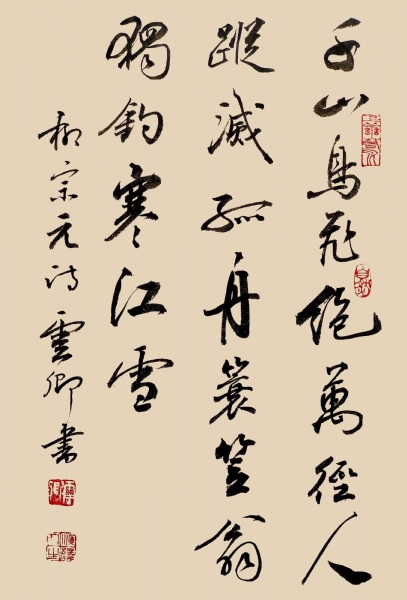 千山鳥飛絕萬徑人
蹤滅孤舟蓑笠翁
獨釣寒江雪
柳宗元诗雲卿书